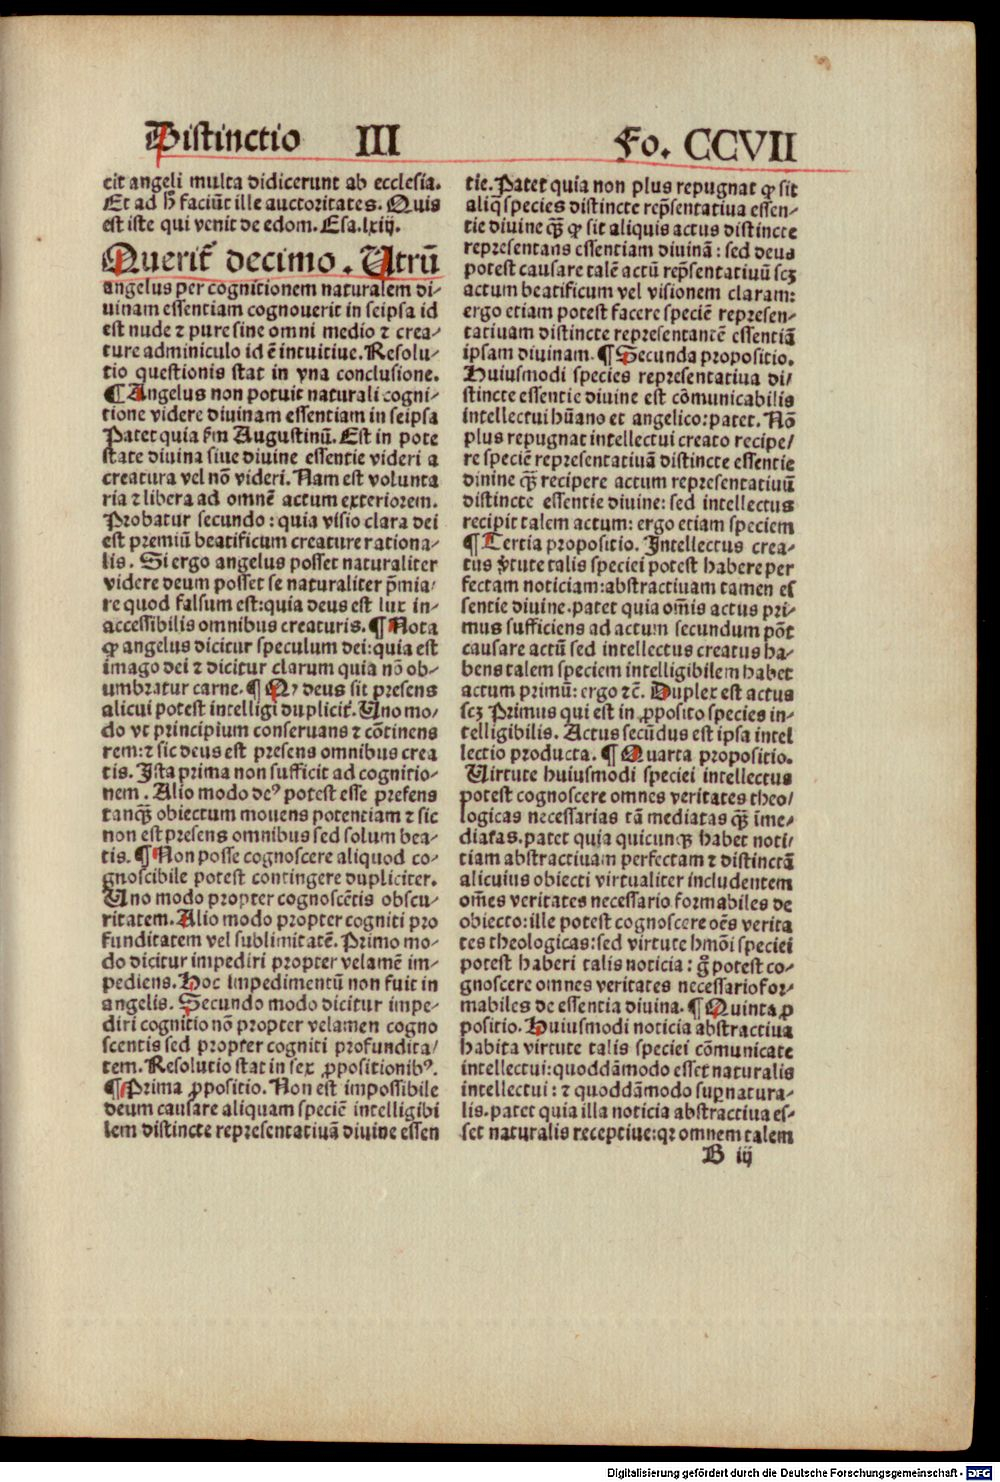 Distinctio III Fo. CCVII
cit angeli multa didicerunt ab ecclesia.
Et ad h̄ faciūt ille auctoritates. Quis
est iste qui venit de edom. Esa.lxiij.
Querit̄ decimo. Utrū
angelus per cognitionem naturalem di⸗
uinam essentiam cognouerit in seipsa id
est nude ⁊ pure sine omni medio ⁊ crea⸗
ture adminiculo id ē intuitiue. Resolu⸗
tio questionis stat in vna conclusione.
¶ Angelus non potuit naturali cogni⸗
tione videre diuinam essentiam in seipsa
Patet quia ẜm Augustinū. Est in pote
state diuina siue diuine essentie videri a
creatura vel nō videri. Nam est volunta
ria ⁊ libera ad omnē actum exteriorem.
Probatur secundo: quia visio clara dei
est premiū beatificum creature rationa⸗
lis. Si ergo angelus posset naturaliter
videre deum posset se naturaliter p̄mia⸗
re quod falsum est: quia deus est lux in⸗
accessibilis omnibus creaturis. ¶ Nota
ꝙ angelus dicitur speculum dei: quia est
imago dei ⁊ dicitur clarum quia nō ob⸗
umbratur carne. ¶ Qꝛ deus sit presens
alicui potest intelligi duplicit̄. Uno mo⸗
do vt principium conseruans ⁊ cōtinens
rem: ⁊ sic deus est presens omnibus crea
tis. Ista prima non sufficit ad cognitio⸗
nem. Alio modo deꝰ potest esse presens
tanqꝫ̄ obiectum mouens potentiam ⁊ sic
non est presens omnibus sed solum bea⸗
tis. ¶ Non posse cognoscere aliquod co⸗
gnoscibile potest contingere dupliciter.
Uno modo propter cognoscētis obscu⸗
ritatem. Alio modo propter cogniti pro
funditatem vel sublimitatē. Primo mo⸗
do dicitur impediri propter velamē im⸗
pediens. Hoc impedimentū non fuit in
angelis. Secundo modo dicitur impe⸗
diri cognitio nō propter velamen cogno
scentis sed propter cogniti profundita⸗
tem. Resolutio stat in sex ꝓpositionibꝰ.
¶ Prima ꝓpositio. Non est impossibile
deum causare aliquam speciē intelligibi
lem distincte representatiuā diuine essen
tie. Patet quia non plus repugnat ꝙ sit
aliq̄ species distincte rep̄sentatiua essen⸗
tie diuine qꝫ̄ ꝙ sit aliquis actus distincte
representans essentiam diuinā: sed deus
potest causare talē actū rep̄sentatiuū scꝫ
actum beatificum vel visionem claram:
ergo etiam potest facere speciē represen⸗
tatiuam distincte representantē essentiā
ipsam diuinam. ¶ Secunda propositio.
Huiusmodi species representatiua di⸗
stincte essentie diuine est cōmunicabilis
intellectui hūano et angelico: patet. Nō
plus repugnat intellectui creato recipe⸗
re speciē representatiuā distincte essentie
diuine qꝫ̄ recipere actum representatiuū
distincte essentie diuine: sed intellectus
recipit talem actum: ergo etiam speciem
¶ Tertia propositio. Intellectus crea⸗
tus v̄tute talis speciei potest habere per
fectam noticiam: abstractiuam tamen es
sentie diuine. patet quia oīs actus pri⸗
mus sufficiens ad actum secundum pōt
causare actū sed intellectus creatus ha⸗
bens talem speciem intelligibilem habet
actum primū: ergo ⁊c̄. Duplex est actus
scꝫ Primus qui est in ꝓposito species in⸗
telligibilis. Actus secūdus est ipsa intel
lectio producta. ¶ Quarta propositio.
Uirtute huiusmodi speciei intellectus
potest cognoscere omnes veritates theo⸗
logicas necessarias tā mediatas qꝫ̄ īme⸗
diatas. patet quia quicunqꝫ habet noti⸗
tiam abstractiuam perfectam ⁊ distinctā
alicuius obiecti virtualiter includentem
om̄es veritates necessario formabiles de
obiecto: ille potest cognoscere oēs verita
tes theologicas: sed virtute hmōi speciei
potest haberi talis noticia: g̊ potest co⸗
gnoscere omnes veritates necessario for⸗
mabiles de essentia diuina. ¶ Quinta ꝓ
positio. Huiusmodi noticia abstractiua
habita virtute talis speciei cōmunicate
intellectui: quoddāmodo esset naturalis
intellectui: ⁊ quoddāmodo suꝑnatura⸗
lis. patet quia illa noticia abstractiua es⸗
set naturalis receptiue: qꝛ omnem talem
B iij
Digitalisierung gefördert durch die Deutsche Forschungsgemeinschaft - DFG